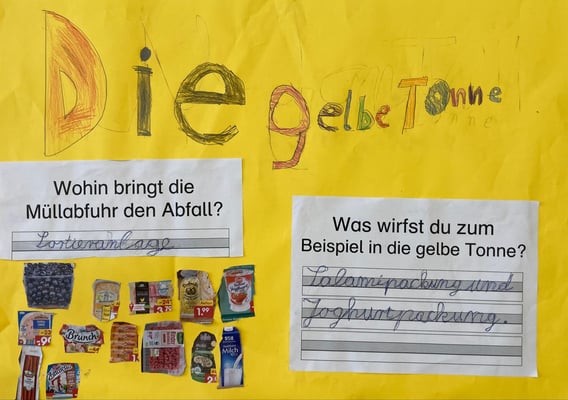 Die gelbe Tonne
Wohin bringt die
Müllabfuhr den Abfall?
Sortieranlage
Was wirfst du zum
Beispiel in die gelbe Tonne?
Salamipackung und
Joghurtpackung.
1.99
Brunch
Milch